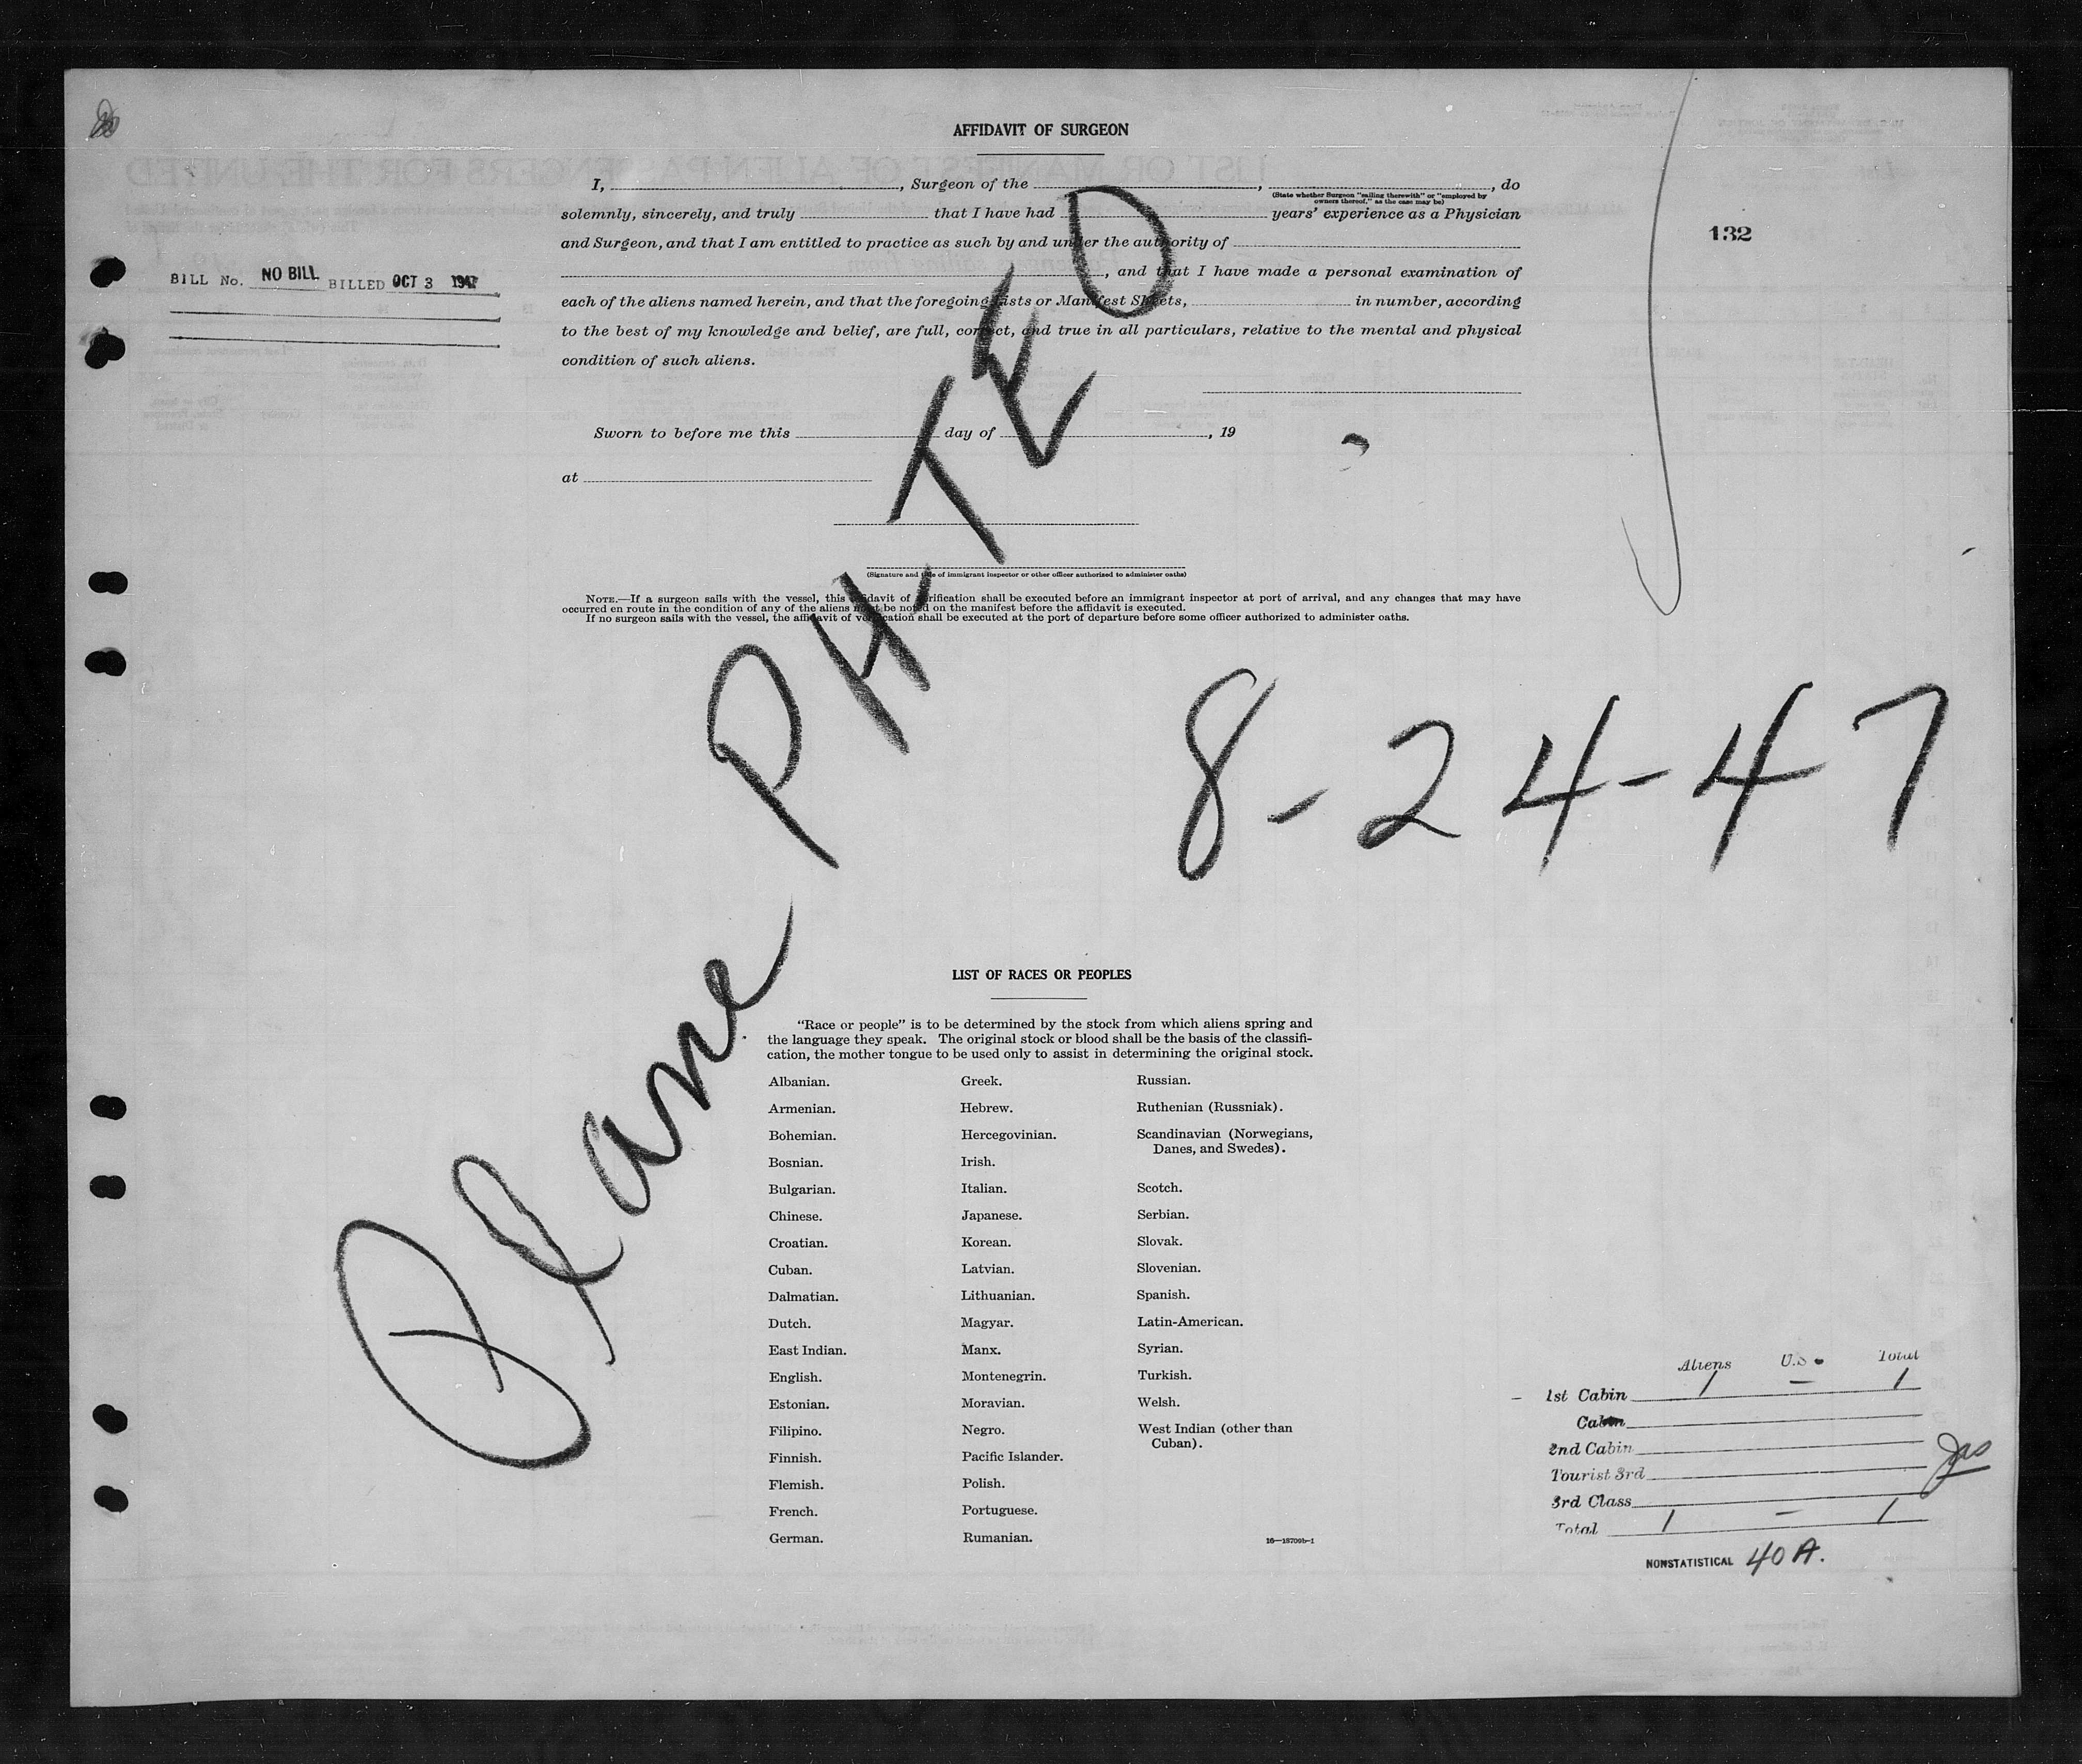 AFFIDAVIT OF SURGEON
I, , Surgeon of the , , do
(State whether Surgeon "sailing therewith" or "employed by
owners thereof," as the case may be)
solemnly, sincerely, and truly that I have had years' experience as a Physician
and Surgeon, and that I am entitled to practice as such by and under the authority of
, and that I have made a personal examination of
each of the aliens named herein, and that the foregoing Lists or Manifest Sheets, in number, according
to the best of my knowledge and belief, are full, correct, and true in all particulars, relative to the mental and physical
condition of such aliens.
Sworn to before me this day of , 19
at
(Signature and title of immigrant inspector or other officer authorized to administer oaths)
NOTE.—If a surgeon sails with the vessel, this affidavit of verification shall be executed before an immigrant inspector at port of arrival, and any changes that may have
occurred en route in the condition of any of the aliens must be noted on the manifest before the affidavit is executed.
If no surgeon sails with the vessel, the affidavit of verification shall be executed at the port of departure before some officer authorized to administer oaths.
132
BILL No. NO BILL BILLED OCT 3 1947
Plane PH-TED
8-24-47
LIST OF RACES OR PEOPLES
"Race or people" is to be determined by the stock from which aliens spring and
the language they speak. The original stock or blood shall be the basis of the classifi-
cation, the mother tongue to be used only to assist in determining the original stock.
Albanian.
Armenian.
Bohemian.
Bosnian.
Bulgarian.
Chinese.
Croatian.
Cuban.
Dalmatian.
Dutch.
East Indian.
English.
Estonian.
Filipino.
Finnish.
Flemish.
French.
German.
Greek.
Hebrew.
Hercegovinian.
Irish.
Italian.
Japanese.
Korean.
Latvian.
Lithuanian.
Magyar.
Manx.
Montenegrin.
Moravian.
Negro.
Pacific Islander.
Polish.
Portuguese.
Rumanian.
Russian.
Ruthenian (Russniak).
Scandinavian (Norwegians,
Danes, and Swedes).
Scotch.
Serbian.
Slovak.
Slovenian.
Spanish.
Latin-American.
Syrian.
Turkish.
Welsh.
West Indian (other than
Cuban).
16—18709b-1
Aliens U.S. Total
1st Cabin 1 — 1
Cabin
2nd Cabin
Tourist 3rd
3rd Class
Total 1 — 1
NONSTATISTICAL 40 A.